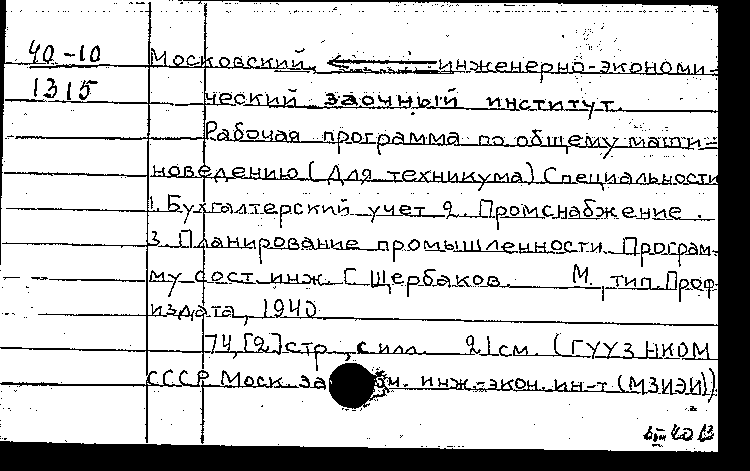 40-10
1315
Московский инженерно-экономи-
ческий заочный институт.
Рабочая программа по общему маши-
новедению (Для техникума) Специальности
1. Бухгалтерский учет 2. Промснабжение.
3. Планирование промышленности. Програм-
му сост. инж. Г. Щербаков. М., тип. Проф-
издата, 1940.
74, [2] стр., с илл. 21 см. (ГУУЗ НКОМ
СССР. Моск. инж.-экон. ин-т (МЗИЭИ))